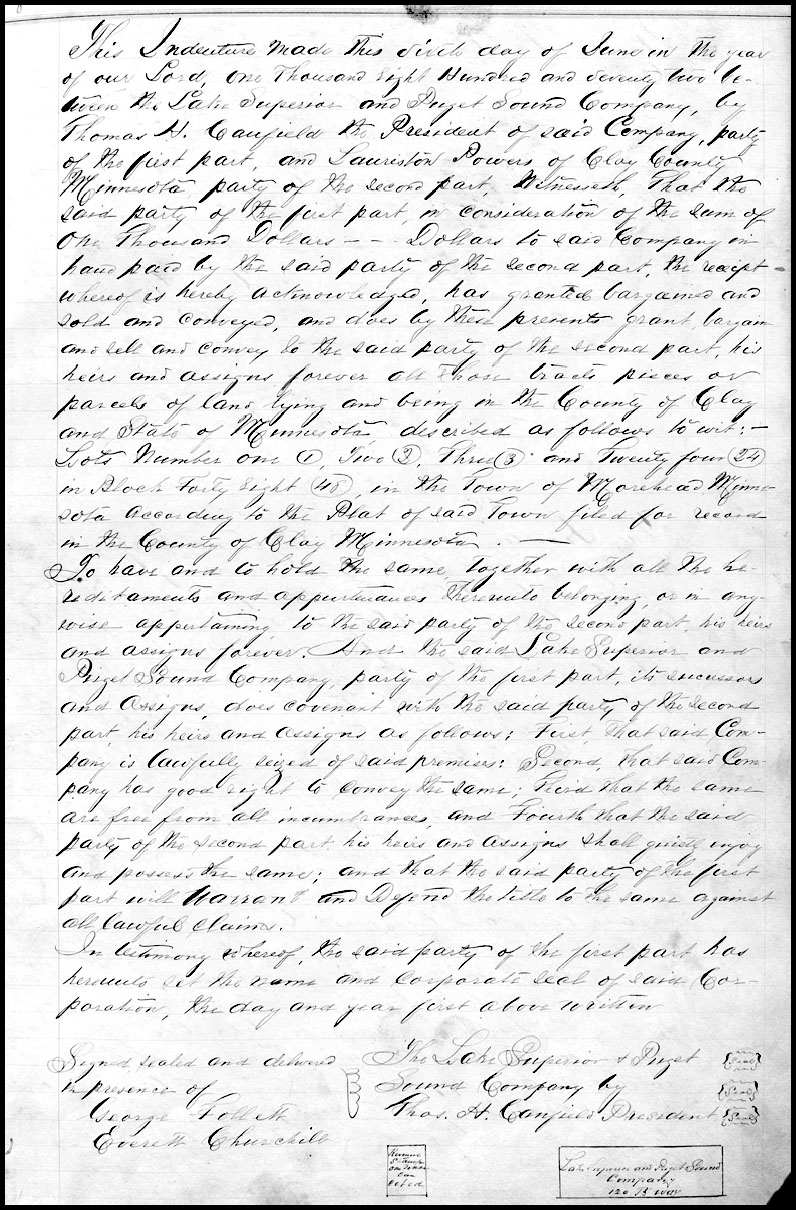 This Indenture made this sixth day of June in the year
of our Lord, one Thousand Eight Hundred and Seventy two be-
tween the Lake Superior and Puget Sound Company, by
Thomas H. Canfield the President of said Company, party
of the first part, and Lauriston Powers of Clay County
Minnesota, party of the second part, Witnesseth, That the
said party of the first part, in consideration of the sum of
One Thousand Dollars - - Dollars to said Company in
hand paid by the said party of the second part, the receipt
whereof is hereby acknowledged, has granted bargained and
sold and conveyed, and does by these presents grant, bargain
and sell and convey to the said party of the second part, his
heirs and assigns forever all those tracts pieces or
parcels of land lying and being in the County of Clay
and State of Minnesota, described as follows to wit: -
Lots Number one (1), Two (2), Three (3) and Twenty four (24)
in Block Forty Eight (48), in the Town of Morehead Minne-
sota According to the Plat of said Town filed for record
in the County of Clay Minnesota. —
To have and to hold the same, together with all the he-
reditaments and appurtenances thereunto belonging, or in any-
wise appertaining to the said party of the second part, his heirs
and assigns forever. And the said Lake Superior and
Puget Sound Company, party of the first part, its successors
and Assigns, does covenant with the said party of the second
part, his heirs and assigns as follows; First, that said Com-
pany is lawfully seized of said premises: Second, that said Com-
pany has good right to convey the same; Third that the same
are free from all incumbrances, and Fourth that the said
party of the second part, his heirs and assigns shall quietly enjoy
and possess the same; and that the said party of the first
part will Warrant and Defend the title to the same against
all lawful claims.
In testimony whereof, the said party of the first part has
hereunto set the name and corporate seal of said Cor-
poration, the day and year first above written
Signed sealed and delivered
in presence of
George Follett
Everett Churchill
The Lake Superior & Puget {Seal}
Sound Company by {Seal}
Thos. H. Canfield President {Seal}
Stamp
Can
celed
Lake Superior and Puget Sound
Company
120 B'way